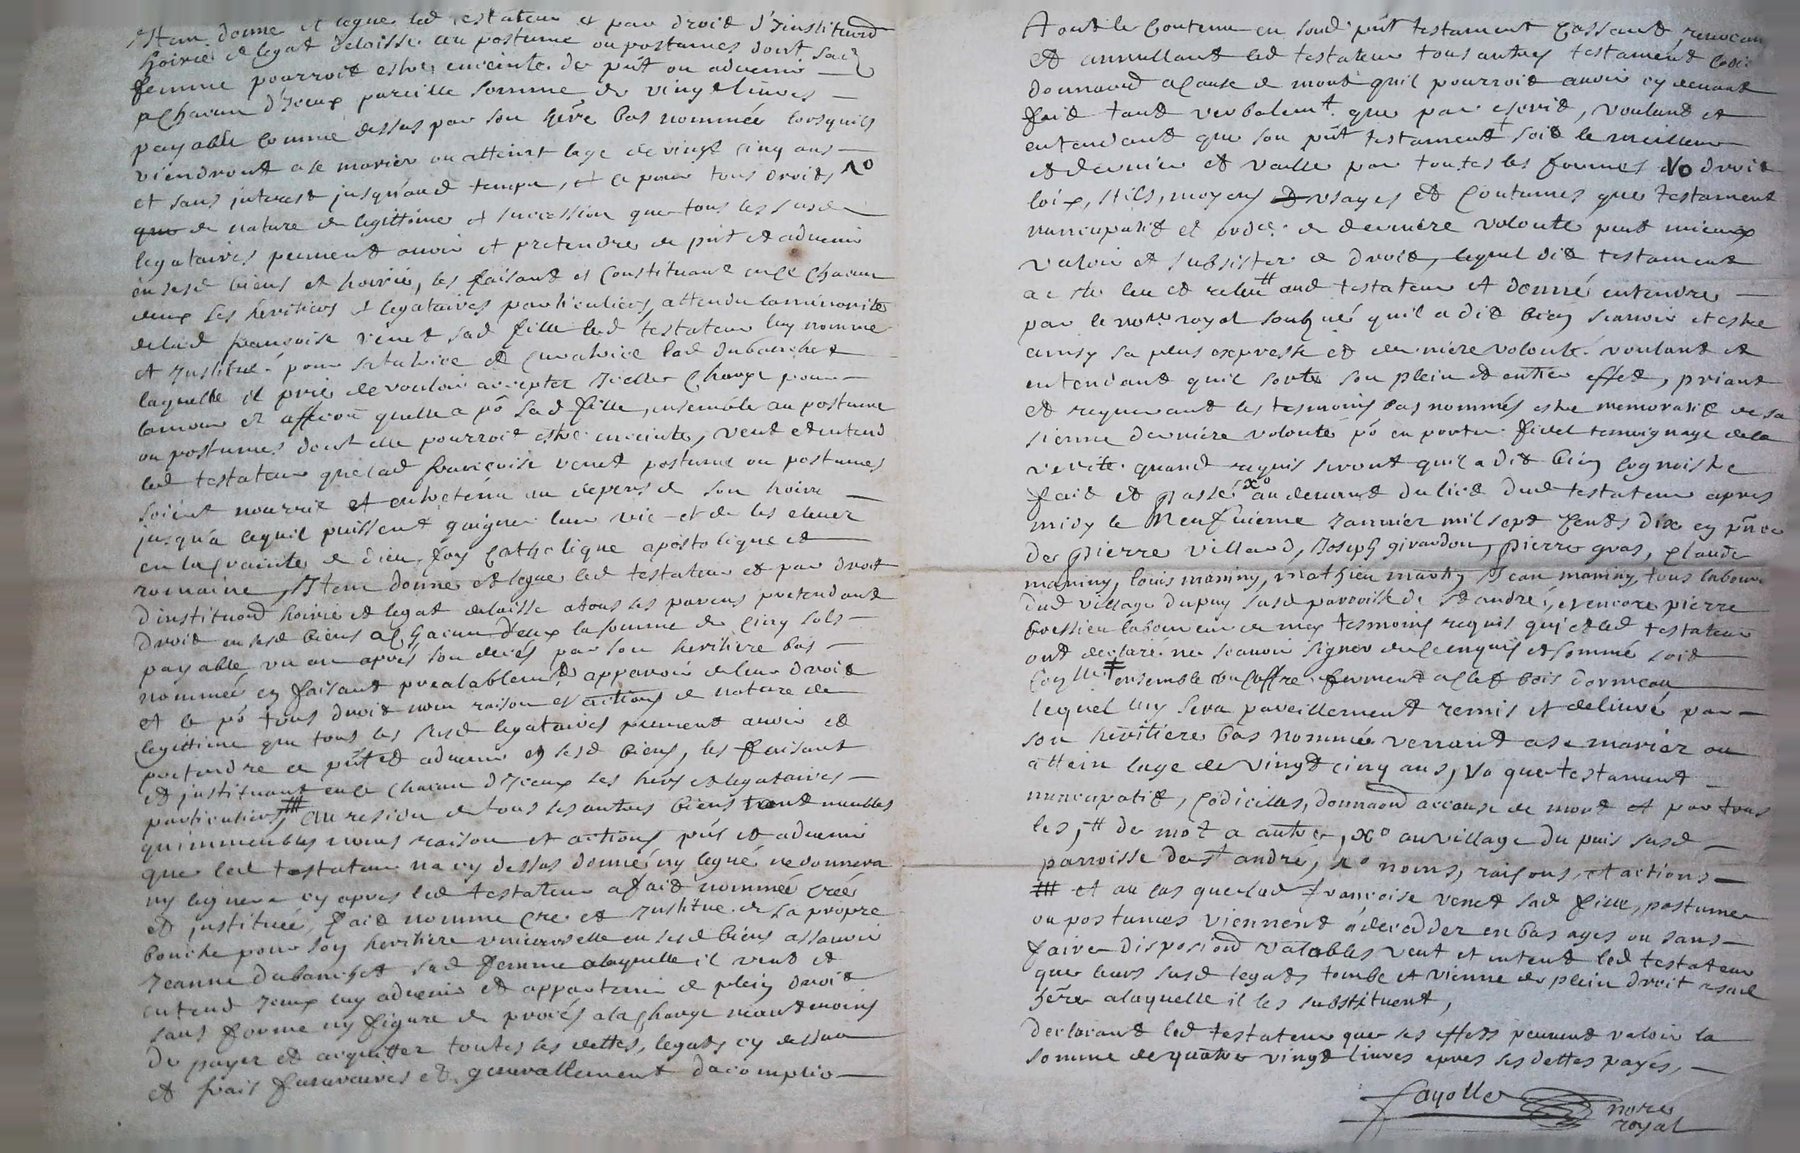 Item donne et legue led testateur et par droit d'institu͠od
hoirie et legat delaisse au postume ou postumes dont sad
femme pourroit estre enceinte de pñt ou advenir —
a Chacun d'Jceux pareille somme de vingt livres —
payable comme dessus par son hẽre bas nommée lorsquils
viendront a se marier ou atteint lage de vingt cinq ans —
et sans interest jusquaud temps, et ce pour tous droits
de nature de legittime et succession que tous les susd
legataires peuvent avoir et pretendre de pñt et advenir
en sesd biens et hoirie, les faisant et constituant en ce chacun
deux ses heritiers et legataires particuliers, attendu la minorité
de lad francoise venet sad fille led testateur luy nomme
et Jnstitue pour sa tutrice et curatrice lad dubanchet
laquelle il prie de vouloir accepter Jcelle charge pour
lamour et affe͠con quelle a põ sad fille, ensemble au postume
ou postumes dont elle pourroit estre enceinte, veut et entend
led testateur que lad francoise venet postume ou postumes
soient nourrie et entretenu au depens de son hoirie —
jusqu'a ce quil puissent gaigner leur vie et de les elever
en la crainte de dieu, foy catholique apostolique et
romaine, Item donne et legue led testateur et par droit
d'institu͠od hoirie et legat delaisse a tous ses parens pretendant
droit en sesd biens a chacun d'eux la somme de cinq sols —
payable un an apres son deces par son heritiere bas —
nommée en faisant prealablement apparoir de leur droit
et ce põ tous droit nom raison et actions de nature de
legittime que tous les susd legataires peuvent avoir et
pretendre de pñt et advenir en sesd biens, les faisant
et justituant en ce chacun d'Jceux ses hers et legataires —
particuliers, au residu de tous ses autres biens tant meubles
quimmeubles noms raison et actions pñs et advenir
que led testateur na cy dessus donné ny legué ne donnera
ny leguera cy apres led testateur a fait nommée créé
et justituée, fait nomme cre et Jnstitue de sa propre
bouche pour son heritiere universelle en sesd biens assavoir
Jeanne dubanchet sad femme a laquelle il veut et
entend Jceux luy advenir et appartenir de plein droit
sans forme ny figure de procés a la charge neantmoins
de payer et acquitter toutes ses dettes, legats cy dessus
et frais funeraires et generallement dacomplir —
tout le contenu en soud pñt testament cassant, revocant
et annullant led testateur tous autres testament codic
donnaod a cause de mort quil pourroit avoir cy devant
fait tant verbalemt que par escrit, voulant et
entendant que son pñt testament soit le meilleur
et dernier et vaille par toutes les formes de droit
loix, stils, moyens usages et coutumes que testament
nuncupatif et ordce de derniere volonte peut mieux
valoir et subsister de droit, lequel dit testament
a este leu et releu aud testateur et donné entendre —
par le nore royal soubzné quil a dit bien scavoir et estre
ainsy sa plus expresse et derniere volonté voulant et
entendant quil sorte son plein et entier effet, priant
et requerant les tesmoins bas nommés estre memoratif de sa
sienne derniere volonté põ en porter fidel temoignage de la
verité quand requis seront quil a dit bien cognoistre
fait et passé xo au devant du lict dud testateur apres
midy le Neufvieme Janvier mil sept cents dix en pñce
de pierre villard, Joseph girardon, pierre gras, claude
maniny, louis maniny, mathieu mathy Jean maniny, tous laboure
dud village dupuy susd parroisse de St andré, et encore pierre
bressieu laboureur de mex tesmoins requis qui et led testateur
ont declaré ne scavoir signer de ce enquis et sommé soit
ensemble un coffre fermant a clef bois d'ormeau
lequel luy sera pareillement remis et delivré par —
son heritiere bas nommée venant a se marier ou
attein lage de vingt cinq ans, Vo que testament —
nuncupatif, codicilles, donnaod a cause de mort et par tous
les, de mot a autre, xo au village du puis susd —
parroisse de St andré, noms, raisons, et actions —
et au cas que lad francoise venet sad fille, postume
ou postumes viennent a decedder en bas ages ou sans —
faire disposi͠od valables veut et entend led testateur
que leurs susd legats tombe et vienne de plein droit a sad
hẽre a laquelle il les substituent,
declarant led testateur que ses effets peuvent valoir la
somme de quatre vingt livres apres ses dettes payés, —
fayolle
nore
royal